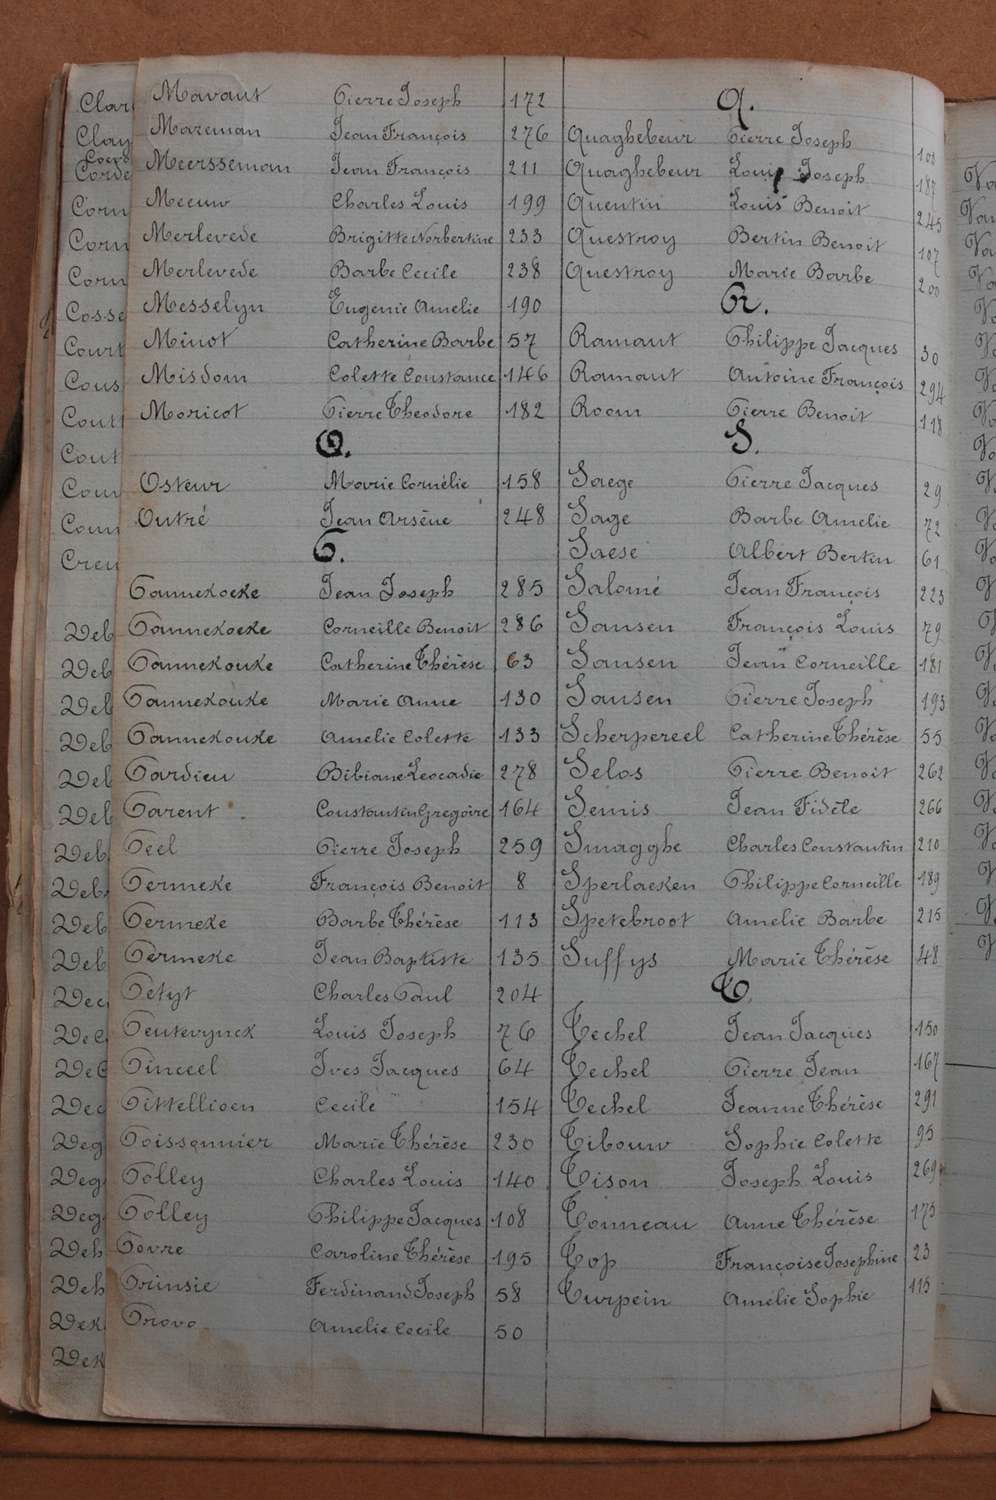 Mavaut Pierre Joseph 172
Mareman Jean François 276
Meersseman Jean François 211
Meeuw Charles Louis 199
Merlevede Brigitte Norbertine 233
Merlevede Barbe Cecile 238
Messelyn Eugenie Amelie 190
Minot Catherine Barbe 57
Misdom Colette Constance 146
Moricot Pierre Theodore 182
O.
Osteur Marie Cornélie 158
Outré Jean Arsène 248
P.
Pannekoeke Jean Joseph 285
Pannekoeke Corneille Benoit 286
Pannekouke Catherine Thérèse 63
Pannekouke Marie Anne 130
Pannekouke Amelie Colette 133
Pardieu Bibiane Leocadie 278
Parent Constantin Gregoire 164
Peel Pierre Joseph 259
Permeke François Benoit 8
Permeke Barbe Thérèse 113
Permeke Jean Baptiste 135
Petyt Charles Paul 204
Peuterynck Louis Joseph 76
Pinceel Ives Jacques 64
Pittellioen Cecile 154
Poissonnier Marie Thérèse 230
Polley Charles Louis 140
Polley Philippe Jacques 108
Povre Caroline Thérèse 195
Prinsie Ferdinand Joseph 58
Provo Amelie Cecile 50
Q.
Quaghebeur Pierre Joseph 108
Quaghebeur Louis Joseph 187
Quentin Louis Benoit 245
Questroy Bertin Benoit 107
Questroy Marie Barbe 200
R.
Ramaut Philippe Jacques 30
Ramaut Antoine François 294
Room Pierre Benoit 118
S.
Saege Pierre Jacques 29
Sage Barbe Amelie 72
Saese Albert Bertin 61
Salomé Jean François 223
Sansen François Louis 79
Sansen Jean Corneille 181
Sansen Pierre Joseph 193
Scherpereel Catherine Thérèse 55
Selos Pierre Benoit 262
Senis Jean Fidèle 266
Smagghe Charles Constantin 210
Sperlaeken Philippe Corneille 189
Spetebroot Amelie Barbe 215
Suffys Marie Thérèse 48
T.
Techel Jean Jacques 150
Techel Pierre Jean 167
Techel Jeanne Thérèse 291
Tibouw Sophie Colette 95
Tison Joseph Louis 269
Tonneau Anne Thérèse 175
Top Françoise Josephine 23
Turpein Amélie Sophie 115